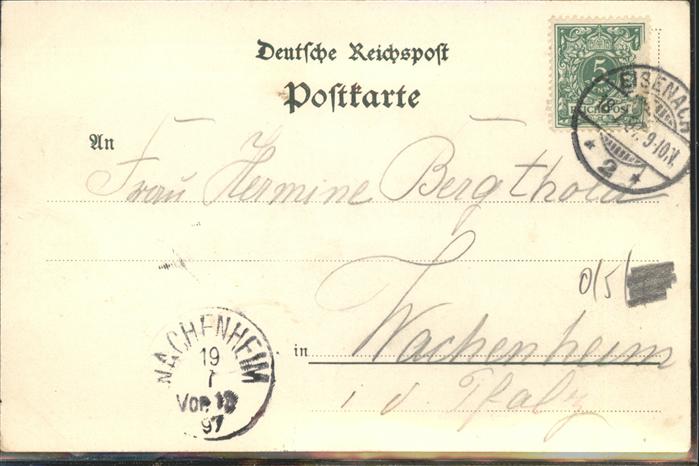 Deutsche Reichspost
Postkarte
5
REICHSPOST
EISENACH
18 9-10.V.
* 2 *
An Frau Hermine Bergthold
0/5/
in Wachenheim
i. d. Pfalz
WACHENHEIM
19
7
Vor. 10
97